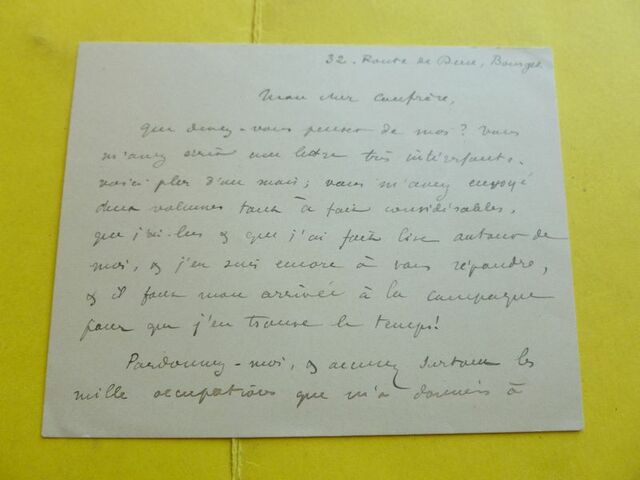 32 - Route de Dun, Bourges
Mon cher Confrère,
Que devez-vous penser de moi? Vous
m'avez écrit une lettre très intéressante,
voici plus d'un mois; vous m'avez envoyé
deux volumes tout à fait considérables,
que j'ai lus & que j'ai fait lire autour de
moi, & j'en suis encore à vous répondre,
& il faut mon arrivée à la campagne
pour que j'en trouve le temps!
Pardonnez-moi, & accusez surtout les
mille occupations que m'a données à